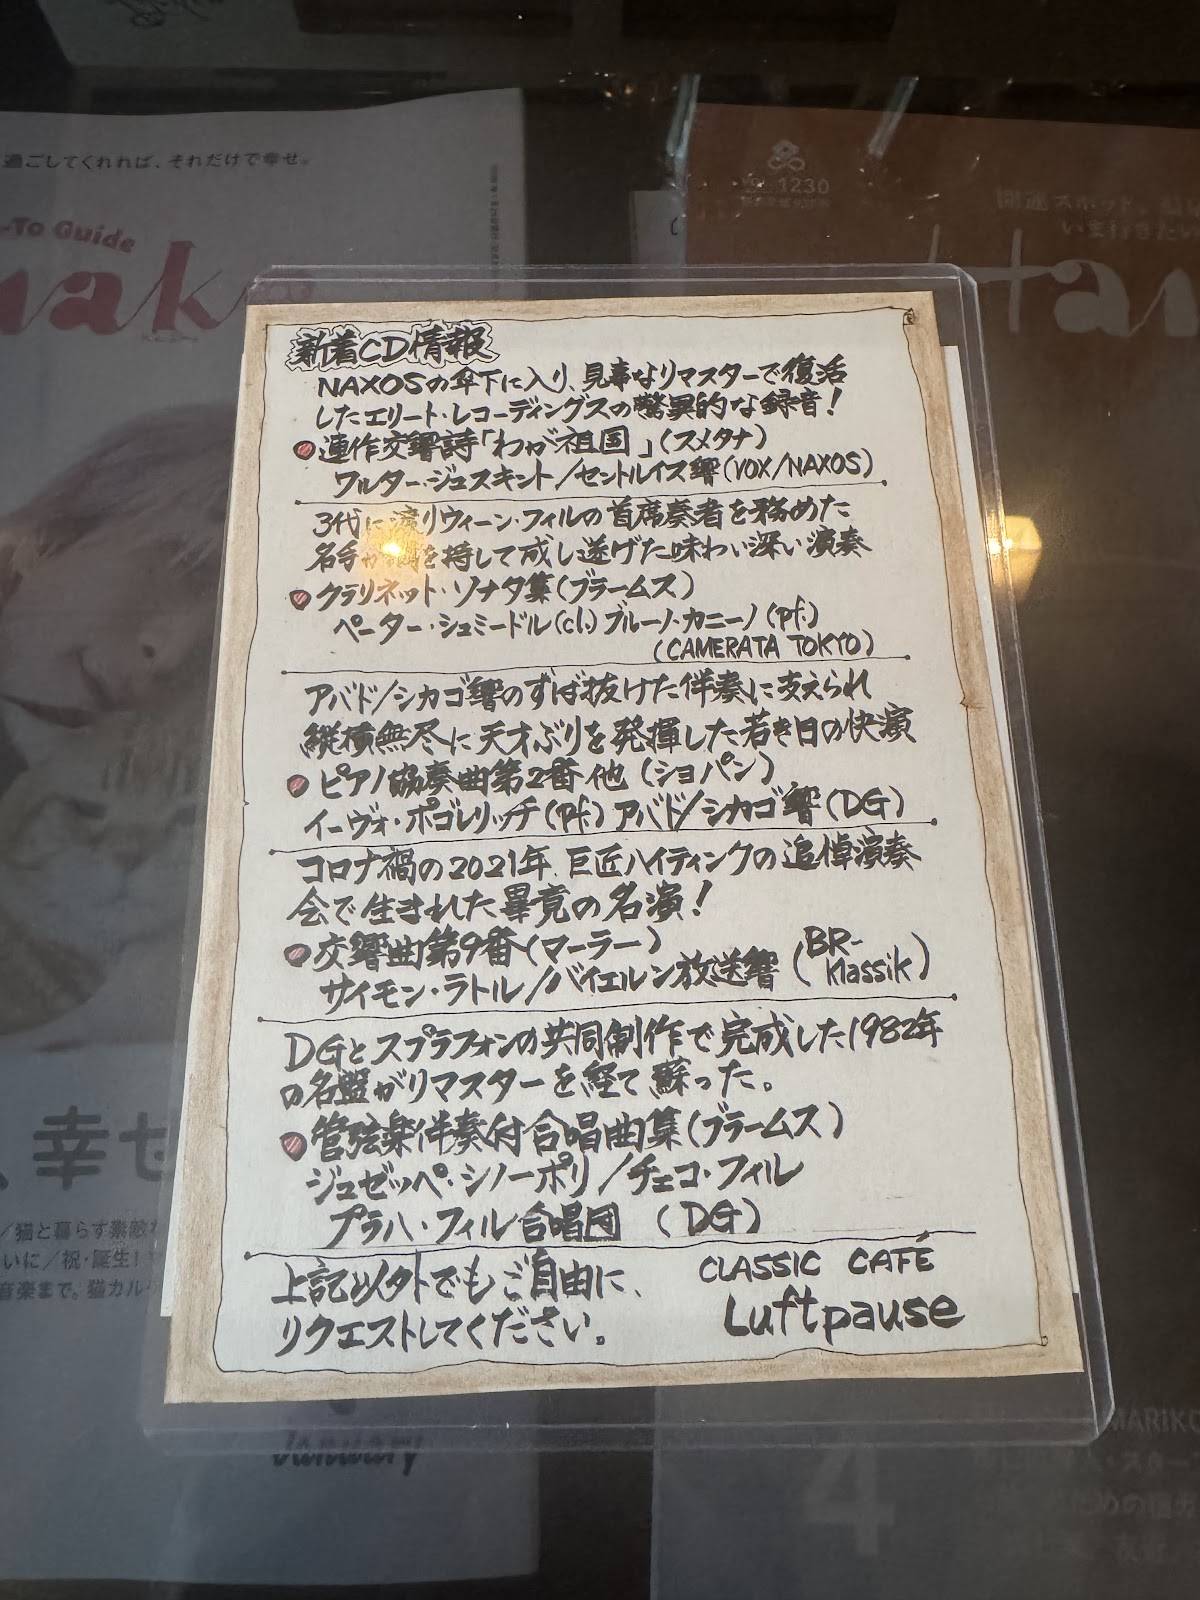 過ごしてくれれば、それだけで幸せ。
-To Guide
1230
開運スポット、
いま行きたい
新着CD情報
NAXOSの傘下に入り、見事なリマスターで復活
したエリート・レコーディングスの驚異的な録音!
連作交響詩「わが祖国」(スメタナ)
ワルター・ジュスキント/セントルイス響(VOX/NAXOS)
3代に渡りウィーン・フィルの首席奏者を務めた
名手が満を持して成し遂げた味わい深い演奏
クラリネット・ソナタ集(ブラームス)
ペーター・シュミードル(cl.)ブルーノ・カニーノ(pf.)
(CAMERATA TOKYO)
アバド/シカゴ響のずば抜けた伴奏に支えられ
縦横無尽に天才ぶりを発揮した若き日の快演
ピアノ協奏曲第2番他(ショパン)
イーヴォ・ポゴレリッチ(pf.)アバド/シカゴ響(DG)
コロナ禍の2021年、巨匠ハイティンクの追悼演奏
会で生まれた畢竟の名演!
交響曲第9番(マーラー)
サイモン・ラトル/バイエルン放送響(BR-Klassik)
DGとスプラフォンの共同制作で完成した1982年
の名盤がリマスターを経て蘇った。
管弦楽伴奏付合唱曲集(ブラームス)
ジュゼッペ・シノーポリ/チェコ・フィル
プラハ・フィル合唱団(DG)
上記以外でもご自由に、
リクエストしてください。
CLASSIC CAFÉ
Luftpause
、幸せ
/猫と暮らす素敵な
いに/祝・誕生!
音楽まで。猫カル
January
MARIKO
4